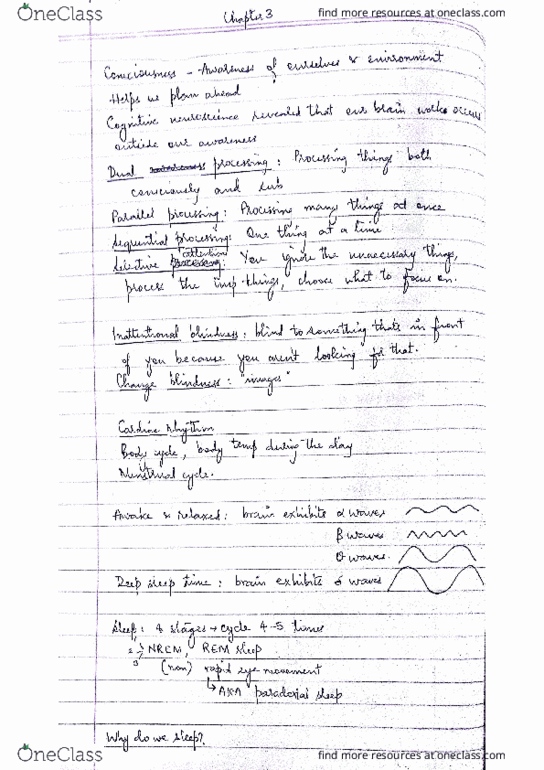 OneClass
find more resources at oneclass.com
Chapter 3
Consciousness - Awareness of ourselves & environment
Helps us plan ahead
Cognitive neuroscience revealed that our brain works occurs
outside our awareness
Dual processing : Processing things both
consciously and sub
Parallel processing : Processing many things at once
Sequential processing : One thing at a time
Selective attention : You ignore the unnecessary things,
process the imp. things, choose what to focus on.
Inattentional blindness : blind to something that's in front
of you because you aren't looking for that.
Change blindness : "images"
Rhythm
Body cycle, body temp during the day
Menstrual cycle.
Awake & relaxed : brain exhibits α waves
β waves
θ waves
Deep sleep time : brain exhibits δ waves
Sleep : 4 stages → cycle 4-5 times
NREM, REM sleep
(non) rapid eye movement
AKA paradoxial sleep
Why do we sleep?
OneClass
find more resources at oneclass.com